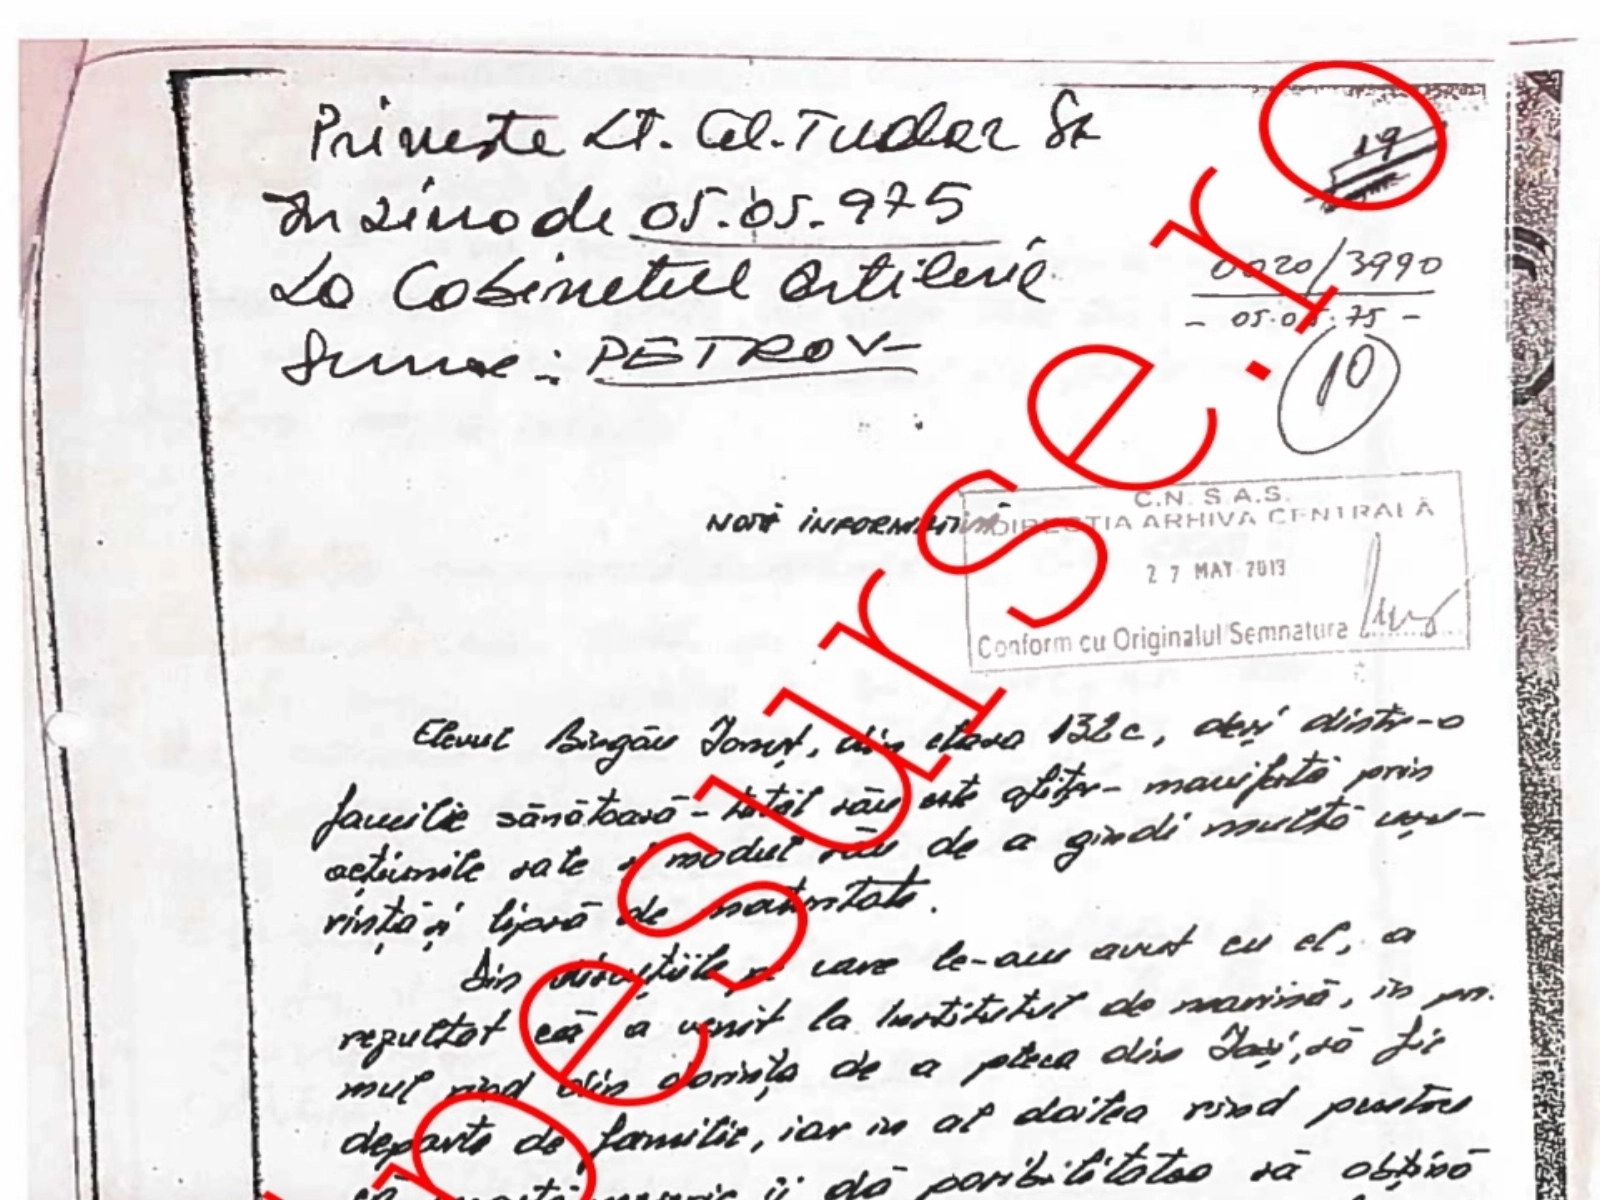 Primește Lt. Col. Tudor St
In ziua de 05.05.975
La Cabinetul Artilerie
Sursa: PETROV
19
0020/3990
- 05.05.75 -
10
NOTĂ INFORMATIVĂ
C.N.S.A.S.
DIRECTIA ARHIVA CENTRALĂ
27 MAY 2013
Conform cu Originalul/Semnatura
Elevul Ionuț, din clasa 132c, deși dintr-o
familie sănătoasă - tatăl său este ofițer - manifestă prin
acțiunile sale și modul său de a gîndi multă ușu-
rință și lipsă de maturitate.
Din discuțiile pe care le-am avut cu el, a
rezultat că a venit la Institutul de marină, în pri-
mul rînd din dorința de a pleca din Iași, să fie
departe de familie, iar în al doilea rînd pentru
că îi dă posibilitatea să obțină
pesurse.ro